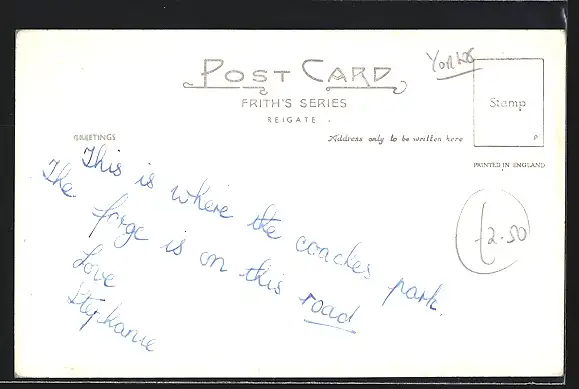 POST CARD
FRITH'S SERIES
REIGATE
YORKS
Stamp
P
GREETINGS
Address only to be written here
PRINTED IN ENGLAND
This is where the coaches park.
The forge is on this road
Love
Stephanie
£2.50